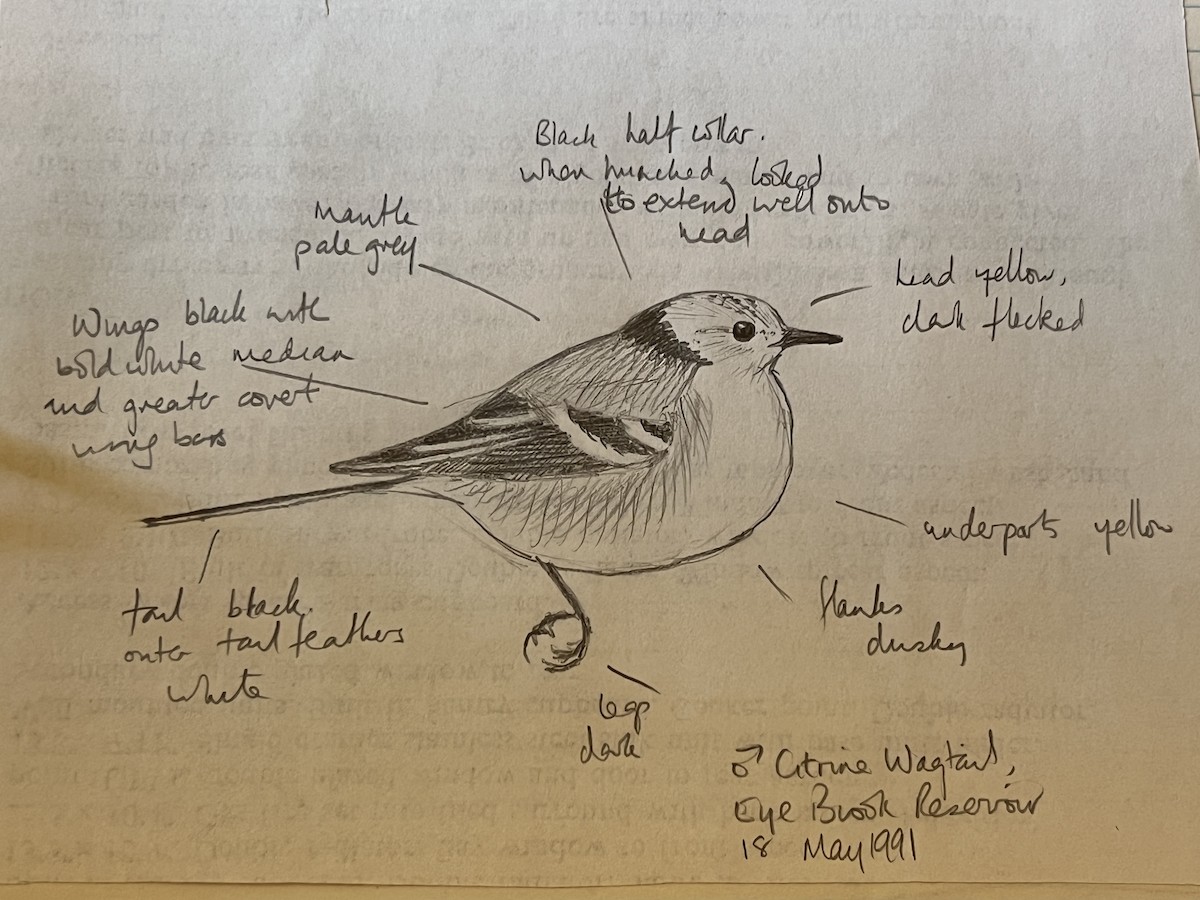 Black half collar.
when hunched, looked
to extend well onto
head
Mantle
pale grey
head yellow,
dark flecked
Wings black with
bold white median
and greater covert
wing bars
underparts yellow
tail black.
outer tail feathers
white
flanks
dusky
legs
dark
♂ Citrine Wagtail,
Eye Brook Reservoir
18 May 1991